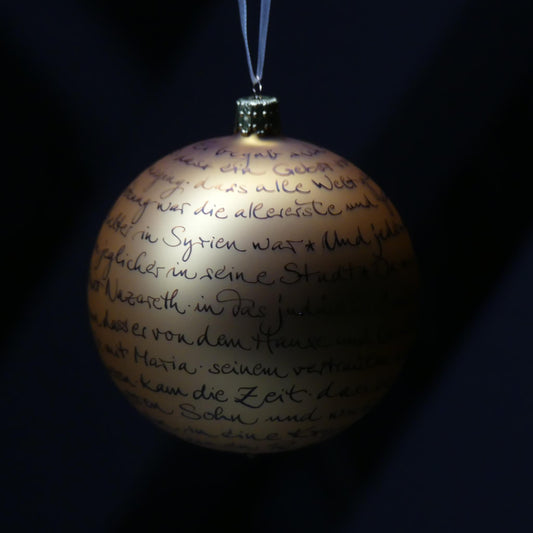 begab
ein Gebot
dass alle Welt
war die allererste und
in Syrien war * Und jeder
jeglicher in seine Stadt * Da
Nazareth · in das
dass er von dem Hause und
mit Maria · seinem vertrauten
kam die Zeit · dass
Sohn und
in eine